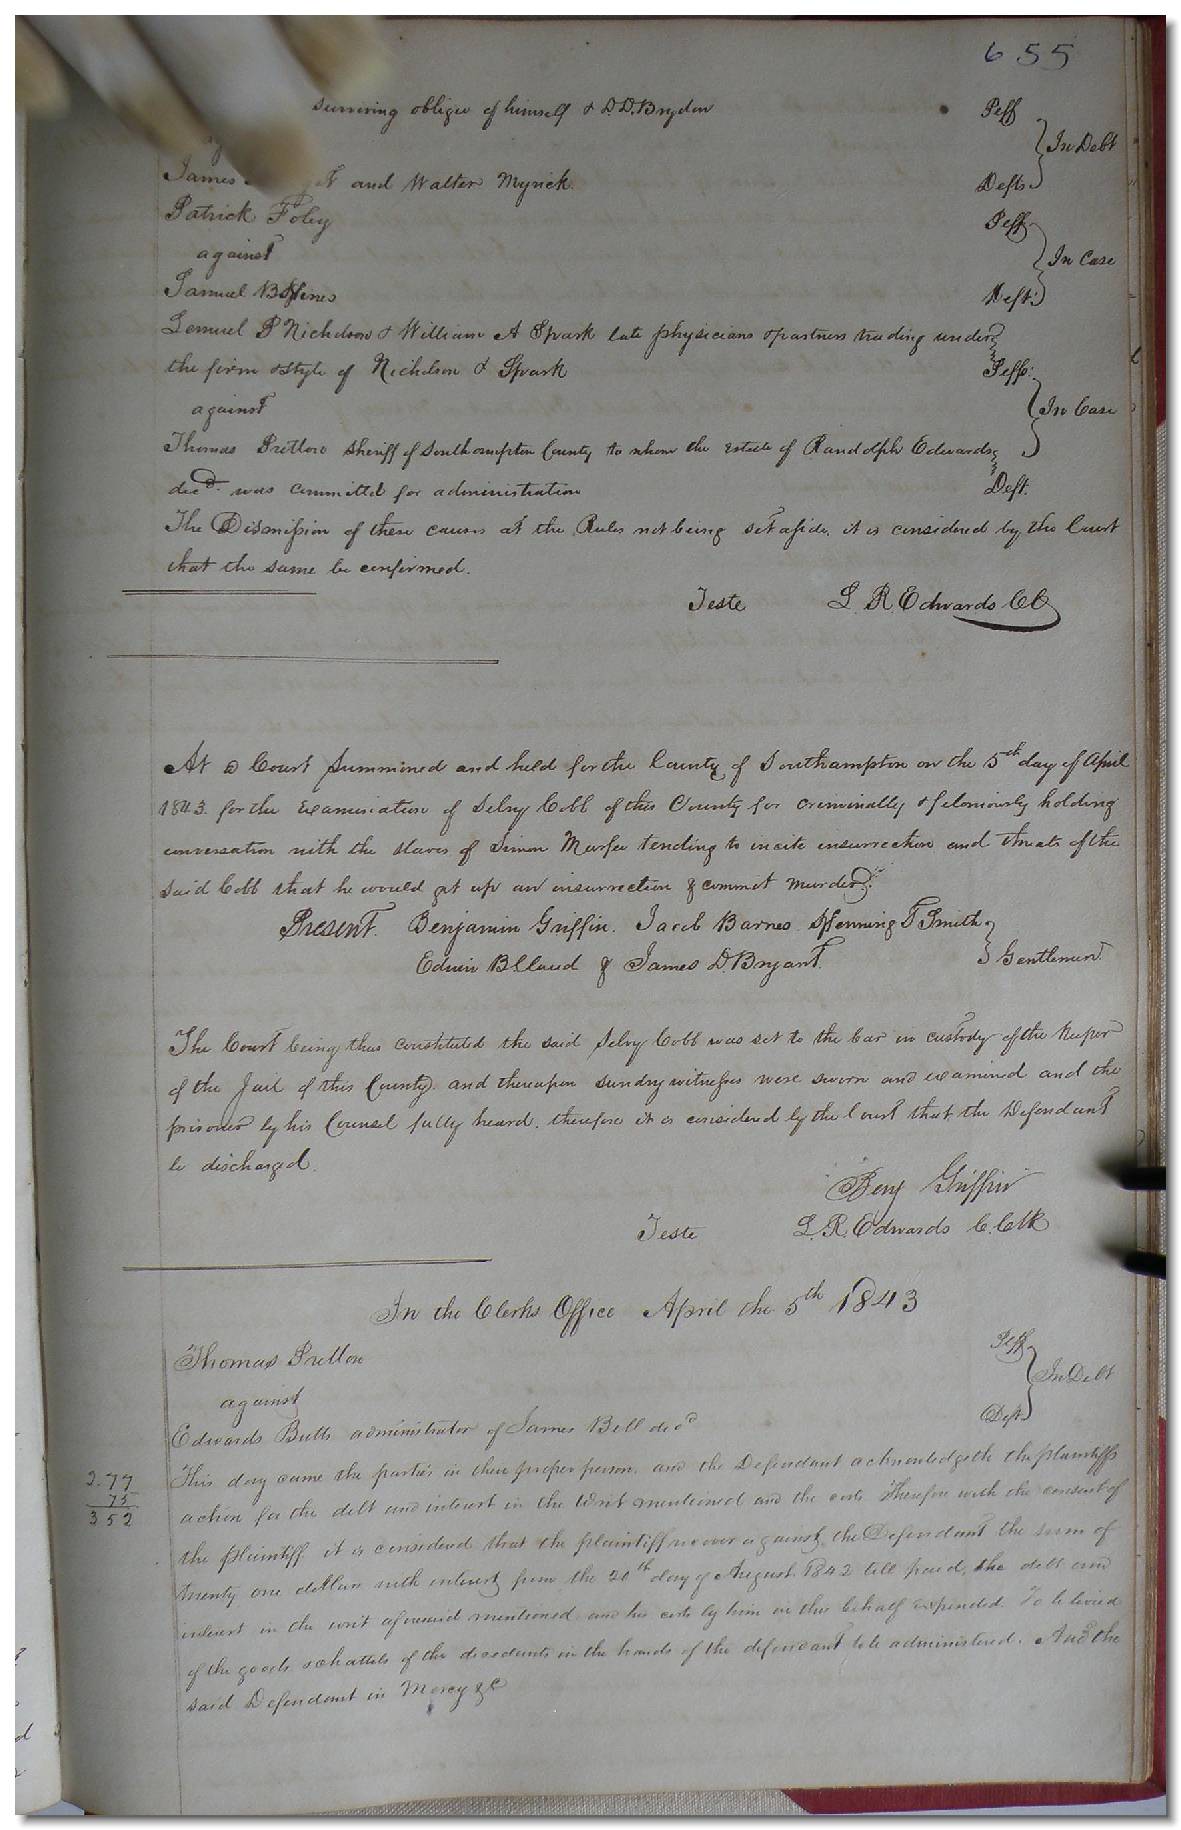 655
surviving obligee of himself & D.D. Brydon Plff
In Debt
James and Walter Myrick. Defts.
Patrick Foley Plff
against In Case
Samuel B Hines Deft.
Lemuel P Nicholson & William A Spark late physicians & partners trading under
the firm & style of Nicholson & Spark Plffs.
against In Case
Thomas Pretlow Sheriff of Southampton County to whom the estate of Randolph Edwards
decd. was committed for administration Deft.
The Dismission of these causes at the Rules not being set aside, it is considered by the Court
that the same be confirmed.
Teste L. R. Edwards CC
At a Court summoned and held for the County of Southampton on the 5th day of April
1843. for the examination of Selvy Cobb of this County for criminally & feloniously holding
conversation with the slaves of Simon Murfee tending to incite insurrection and threats of the
said Cobb that he would get up an insurrection & commit murder.
Present. Benjamin Griffin. Jacob Barnes Henning T Smith
Edwin B Claud & James D. Bryant. Gentlemen.
The Court being thus constituted the said Selvy Cobb was set to the bar in custody of the keeper
of the Jail of this County. and thereupon sundry witnesses were sworn and examined and the
prisoner by his Counsel fully heard. therefore it is considered by the Court that the Defendant
be discharged.
Benj Griffin
Teste L. R. Edwards C. Clk
In the Clerks Office April the 5th 1843
Thomas Pretlow Plff
against In Debt
Edwards Butts administrator of James Bell decd Deft
This day came the parties in their proper person. and the Defendant acknowledgeth the plaintiffs
2.77
75
352
action for the debt and interest in the Writ mentioned and the costs Therefore with the consent of
the plaintiff it is considered that the plaintiff recover against the Defendant the sum of
twenty one dollars with interest from the 20th day of August 1842 till paid, the debt and
interest in the writ aforesaid mentioned and his costs by him in this behalf expended To be levied
of the goods & chattels of the decedents in the hands of the defendant to be administered. And the
said Defendant in Mercy &c